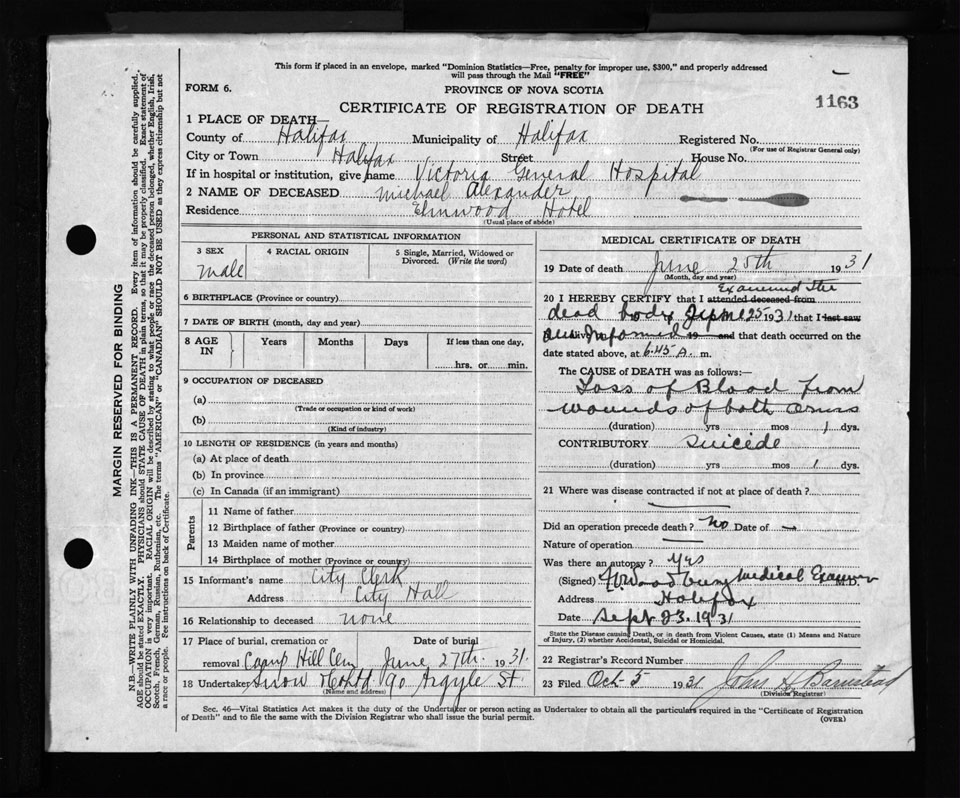 This form if placed in an envelope, marked "Dominion Statistics—Free, penalty for improper use, $300," and properly addressed
will pass through the Mail "FREE"
FORM 6.
PROVINCE OF NOVA SCOTIA
1163
CERTIFICATE OF REGISTRATION OF DEATH
1 PLACE OF DEATH—
County of Halifax Municipality of Halifax Registered No.
(For use of Registrar General only)
City or Town Halifax Street House No.
If in hospital or institution, give name Victoria General Hospital
2 NAME OF DECEASED Michael Alexander
Residence Elmwood Hotel
(Usual place of abode)
PERSONAL AND STATISTICAL INFORMATION
3 SEX 4 RACIAL ORIGIN 5 Single, Married, Widowed or
Divorced. (Write the word)
Male
6 BIRTHPLACE (Province or country)
7 DATE OF BIRTH (month, day and year)
8 AGE IN Years Months Days If less than one day,
hrs. or min.
9 OCCUPATION OF DECEASED
(a)
(Trade or occupation or kind of work)
(b)
(Kind of industry)
10 LENGTH OF RESIDENCE (in years and months)
(a) At place of death
(b) In province
(c) In Canada (if an immigrant)
Parents
11 Name of father
12 Birthplace of father (Province or country)
13 Maiden name of mother
14 Birthplace of mother (Province or country)
15 Informant's name City Clerk
Address City Hall
16 Relationship to deceased none
17 Place of burial, cremation or Date of burial
removal Camp Hill Cem June 27th 1931.
18 Undertaker Snow & Co Ltd 90 Argyle St.
(Name and address)
MEDICAL CERTIFICATE OF DEATH
19 Date of death June 25th 1931
(Month, day and year)
Examined the
20 I HEREBY CERTIFY that I attended deceased from
dead body June 25 1931 that I last saw
informed 19 and that death occurred on the
date stated above, at 6.45 A. m.
The CAUSE of DEATH was as follows:—
Loss of Blood from
wounds of both arms
(duration) yrs mos 1 dys.
CONTRIBUTORY Suicide
(duration) yrs mos 1 dys.
21 Where was disease contracted if not at place of death?
Did an operation precede death? No Date of —
Nature of operation
Was there an autopsy? Yes
(Signed) Woodbury Medical Examiner
Address Halifax
Date Sept 23. 1931
State the Disease causing Death, or in death from Violent Causes, state (1) Means and Nature
of Injury, (2) whether Accidental, Suicidal or Homicidal.
22 Registrar's Record Number
23 Filed Oct 5 1931 John A Barnstead
(Division Registrar)
Sec. 46—Vital Statistics Act makes it the duty of the Undertaker or person acting as Undertaker to obtain all the particulars required in the "Certificate of Registration
of Death" and to file the same with the Division Registrar who shall issue the burial permit.
(OVER)
MARGIN RESERVED FOR BINDING
N.B.—WRITE PLAINLY WITH UNFADING INK—THIS IS A PERMANENT RECORD. Every item of information should be carefully supplied.
AGE should be stated EXACTLY. PHYSICIANS should STATE CAUSE OF DEATH in plain terms, so that it may be properly classified. Exact statement of
OCCUPATION is very important. RACIAL ORIGIN will be described by stating to what people or race the deceased person belonged, whether English, Irish,
Scotch, French, German, Russian, Ruthenian, etc. The terms "AMERICAN" or "CANADIAN" SHOULD NOT BE USED as they express citizenship but not
a race or people. See instructions on back of Certificate.